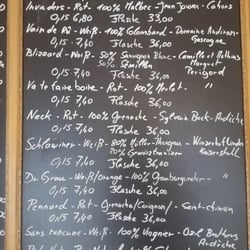 Invaders - Rot - 100% Malbec - Jean Jouve - Cahors
0,15 6,80 Flasche 33,00
Vain de Rû - Weiß - 100% Colombard - Domaine Andiran -
0,15 7,40 Flasche 36,00 Gascogne
Blizzard - Weiß - 50% Sauvignon Blanc - Camille + Mathias
50% Semillon
0,15 7,40 Flasche 36,00 Perigord
Va te faire boire - Rot - 100% Merlot -
0,15 7,40 Flasche 36,00
Neck - Rot - 100% Grenache - Sylvain Bock - Ardèche
0,15 7,40 Flasche 36,00
Schlawiner - Weiß - 80% Müller-Thurgau - 
20% Gewürztraminer Kaiserstuhl
0,15 7,40 Flasche 36,00
Du Grau - Weiß/orange - 100% Grauburgunder -
0,15 7,40 Flasche 36,00
Pennard - Rot - Grenache/Carignan/ - Saint-chinian
0,15 7,40 Flasche 36,00
Sans rancune - Weiß - 100% Viognier - Ozil Brothers
0,15 7,40 Flasche 36,00 Ardèche